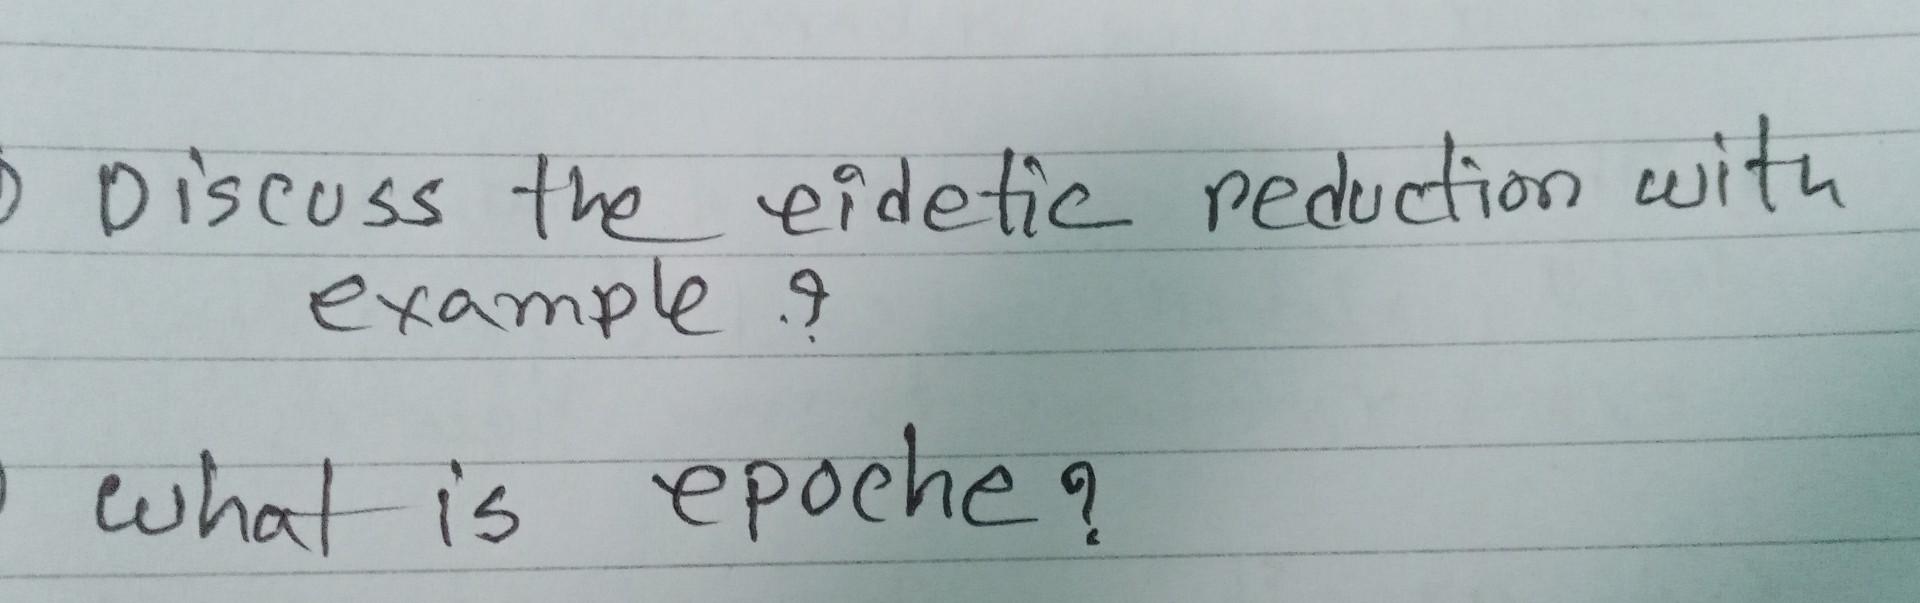 Discuss the eidetic reduction with
example ?
what is epoche?